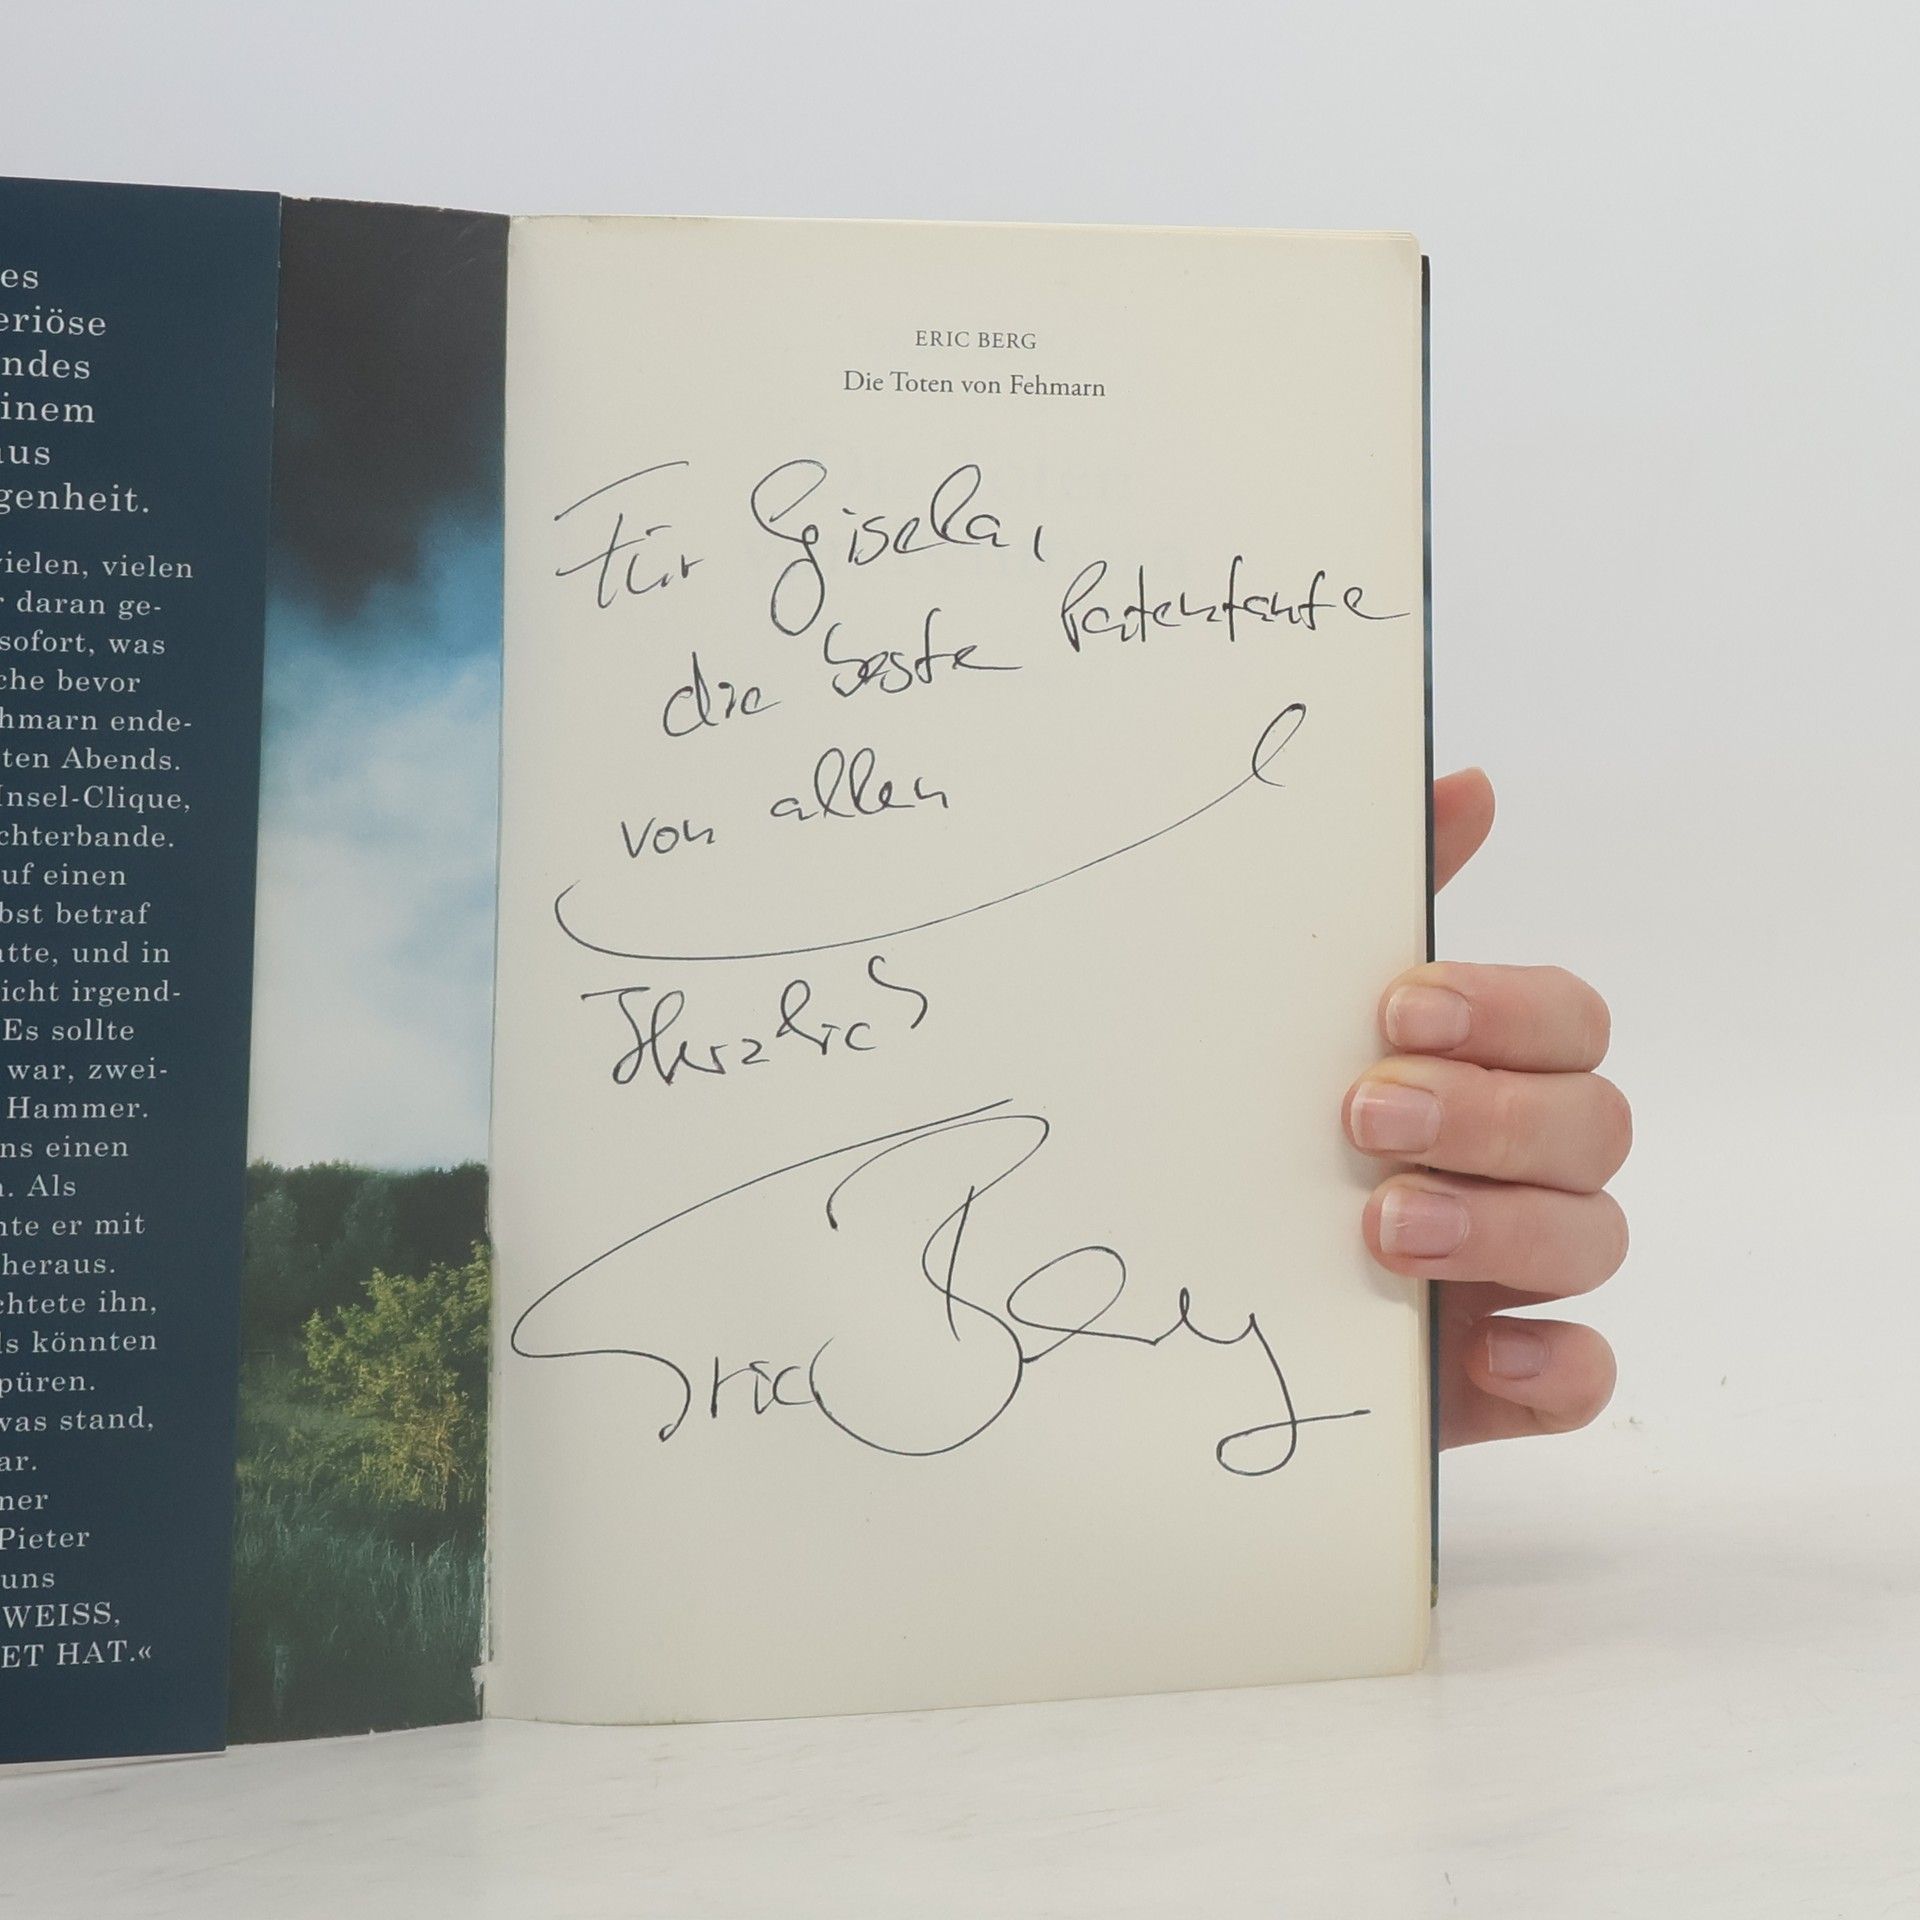 es
eriöse
ndes
inem
aus
genheit.
vielen, vielen
r daran ge-
sofort, was
che bevor
hmarn ende-
ten Abends.
Insel-Clique,
chterbande.
uf einen
bst betraf
atte, und in
icht irgend-
Es sollte
war, zwei-
Hammer.
ns einen
. Als
nte er mit
heraus.
chtete ihn,
ls könnten
püren.
was stand,
ar.
ner
Pieter
uns
WEISS,
ET HAT.«
ERIC BERG
Die Toten von Fehmarn
Für Gisela,
die beste Patentante
von allen
Herzlich
Eric Berg